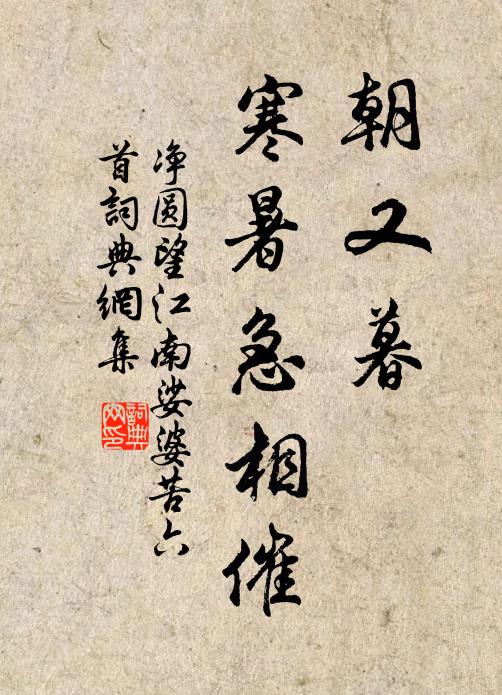 朝又暮
寒暑急相催
净圆望江南娑婆苦六
首詞典網集
詞典
网印